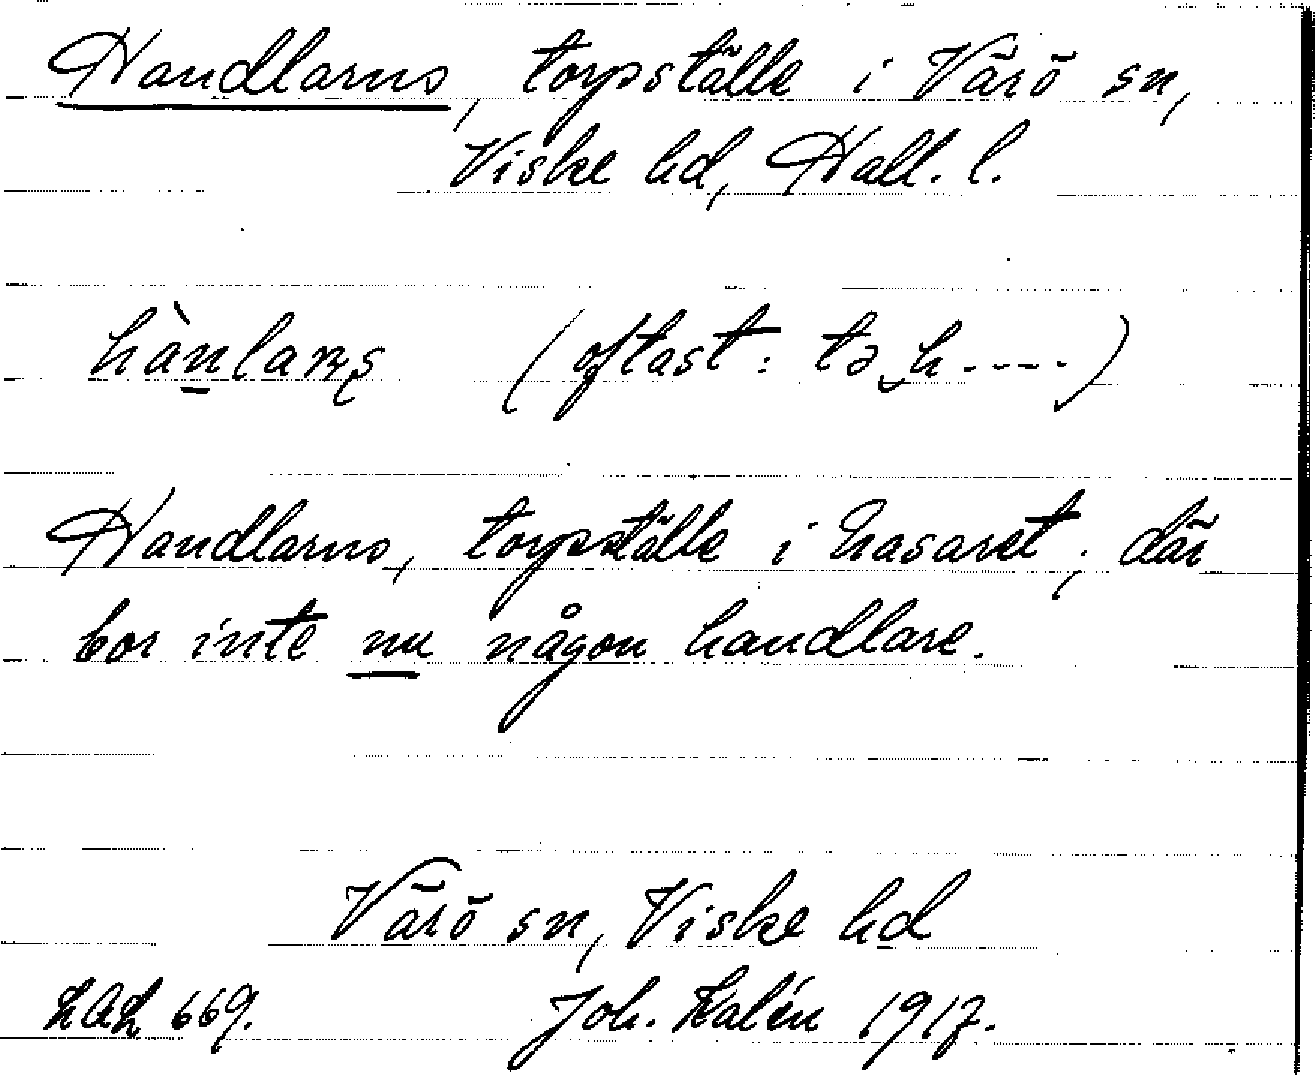 Handlarns, torpställe i Värö sn,
Viske hd, Hall. l.
hànlarn̥s (oftast: tə‿h----)
Handlarns, torpställe i Nasaret; där
bor inte nu någon handlare.
Värö sn, Viske hd
669. Joh. Kalén 1917.